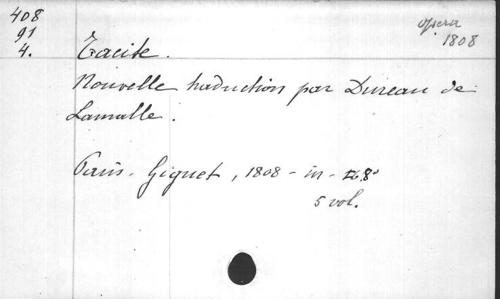 408
91
4.
opera
1808
Tacite.
Nouvelle traduction par Dureau de
Lamalle.
Paris. Giguet, 1808 - in - 8°
5 vol.